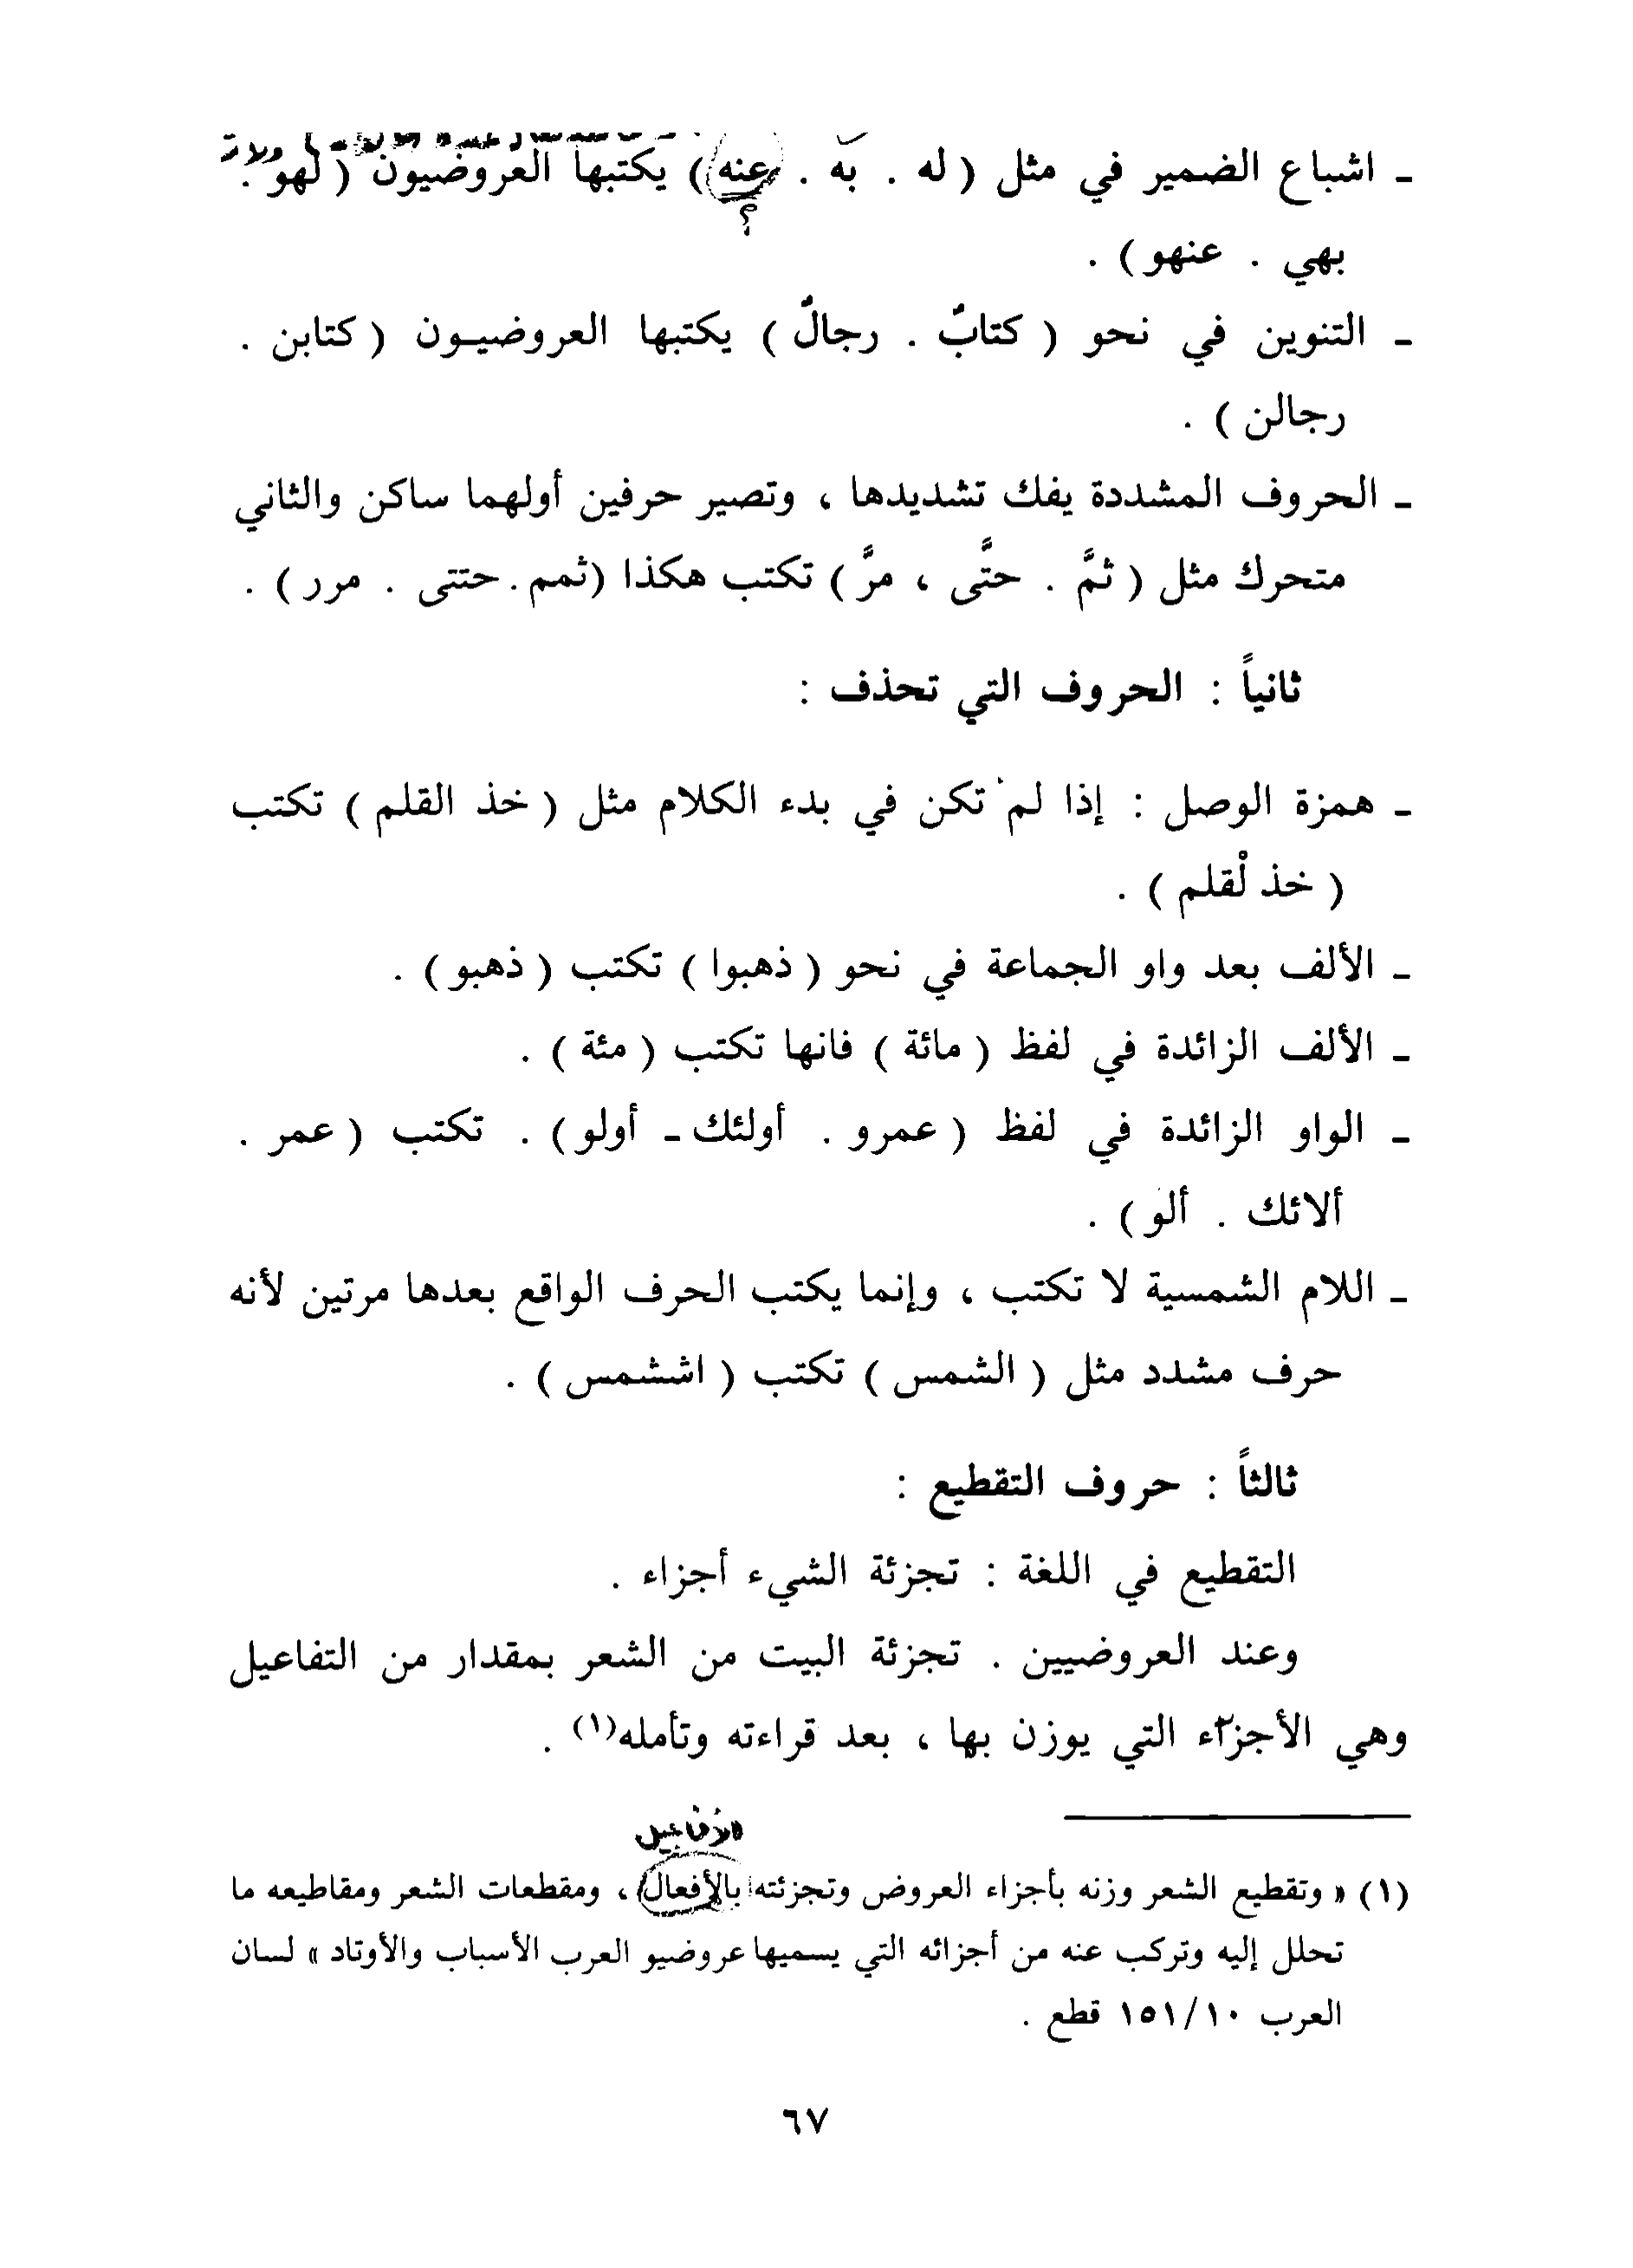 ـ اشباع الضمير في مثل ( له . به . عنه ) يكتبها العروضيون ( لهو .
بهي . عنهو ) .
ـ التنوين في نحو ( كتابٌ . رجالٌ ) يكتبها العروضيـون ( كتابن .
رجالن ) .
ـ الحروف المشددة يفك تشديدها ، وتصير حرفين أولهما ساكن والثاني
متحرك مثل ( ثمَّ . حتَّى ، مرَّ ) تكتب هكذا (ثمم . حتتى . مرر ) .
ثانياً : الحروف التي تحذف :
ـ همزة الوصل : إذا لم تكن في بدء الكلام مثل ( خذ القلم ) تكتب
( خذ لْقلم ) .
ـ الألف بعد واو الجماعة في نحو ( ذهبوا ) تكتب ( ذهبو ) .
ـ الألف الزائدة في لفظ ( مائة ) فانها تكتب ( مئة ) .
ـ الواو الزائدة في لفظ ( عمرو . أولئك ـ أولو ) . تكتب ( عمر .
ألائك . ألو ) .
ـ اللام الشمسية لا تكتب ، وإنما يكتب الحرف الواقع بعدها مرتين لأنه
حرف مشدد مثل ( الشمس ) تكتب ( اششمس ) .
ثالثاً : حروف التقطيع :
التقطيع في اللغة : تجزئة الشيء أجزاء .
وعند العروضيين . تجزئة البيت من الشعر بمقدار من التفاعيل
وهي الأجزاء التي يوزن بها ، بعد قراءته وتأمله(١) .
الأفاعيل
(١) « وتقطيع الشعر وزنه بأجزاء العروض وتجزئته بالأفعال ، ومقطعات الشعر ومقاطيعه ما
تحلل إليه وتركب عنه من أجزائه التي يسميها عروضيو العرب الأسباب والأوتاد » لسان
العرب ١٥١/١٠ قطع .
٦٧